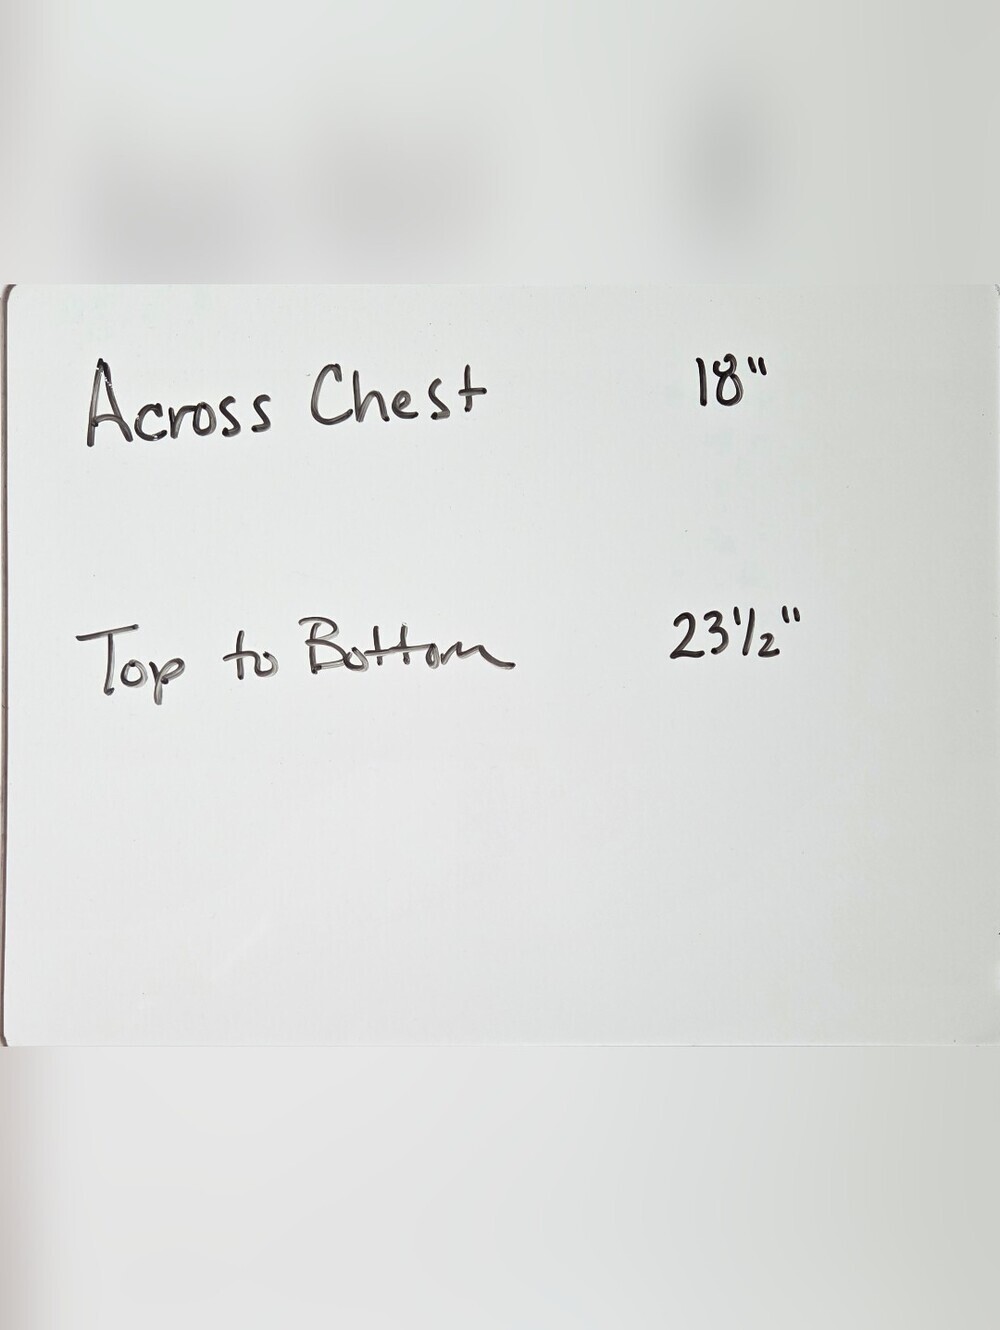 Across Chest 18"
Top to Bottom 23 1/2"